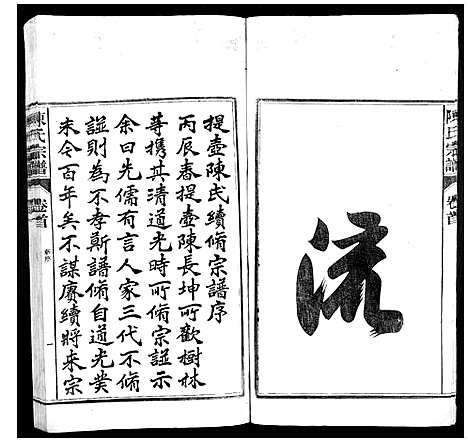 陳氏宗譜
卷首
流
提壺陳氏續脩宗譜序
丙辰春提壺陳長坤所歡樹林
等携其清道光時所脩宗譜示
余曰先儒有言人家三代不脩
譜則為不孝斯譜脩自道光癸
未今百年矣不謀賡續將来宗
陳氏宗譜
卷首
新序
一